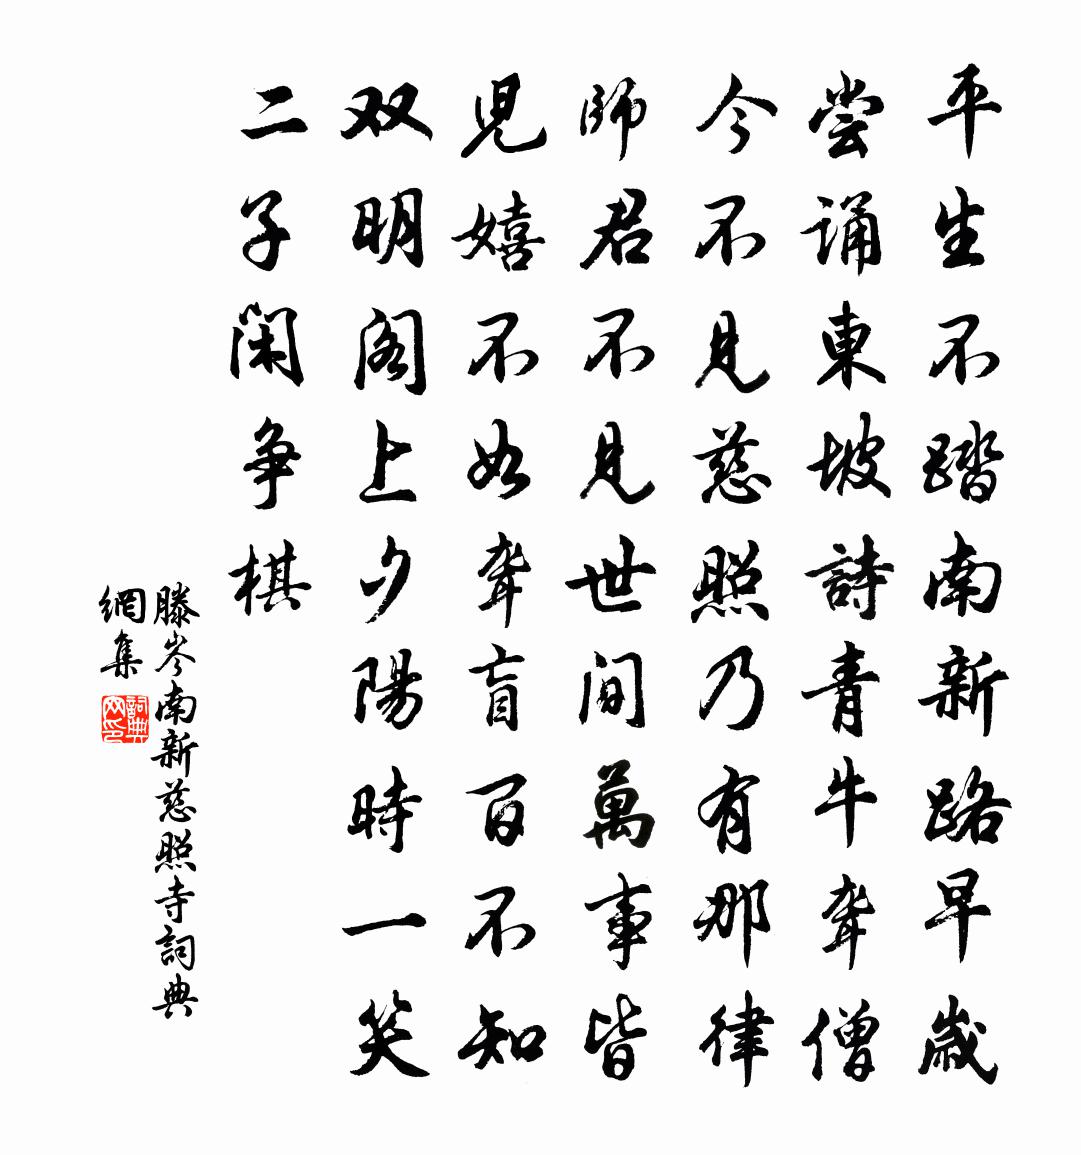 平生不踏南新路早歲
嘗誦東坡詩青牛聾僧
今不見慈照乃有那律
師君不見世間萬事皆
兒嬉不如聾盲百不知
双明阁上夕陽時一笑
二子闲争棋
滕岑南新慈照寺詞典
網集
詞典
网印